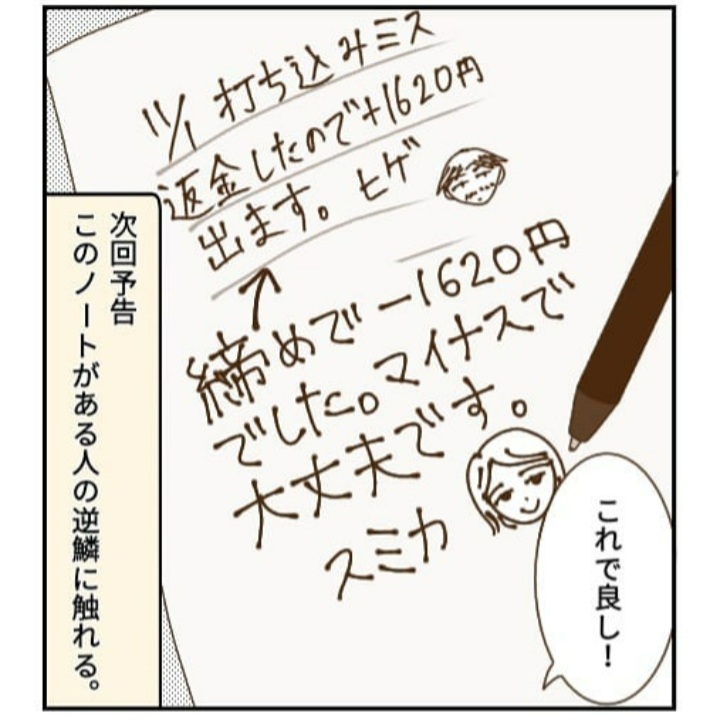 11/1 打ち込みミス
返金したので+1620円
出ます。ヒゲ
↑
締めで−1620円
でした。マイナスで
大丈夫です。
スミカ
これで良し！
次回予告
このノートがある人の逆鱗に触れる。